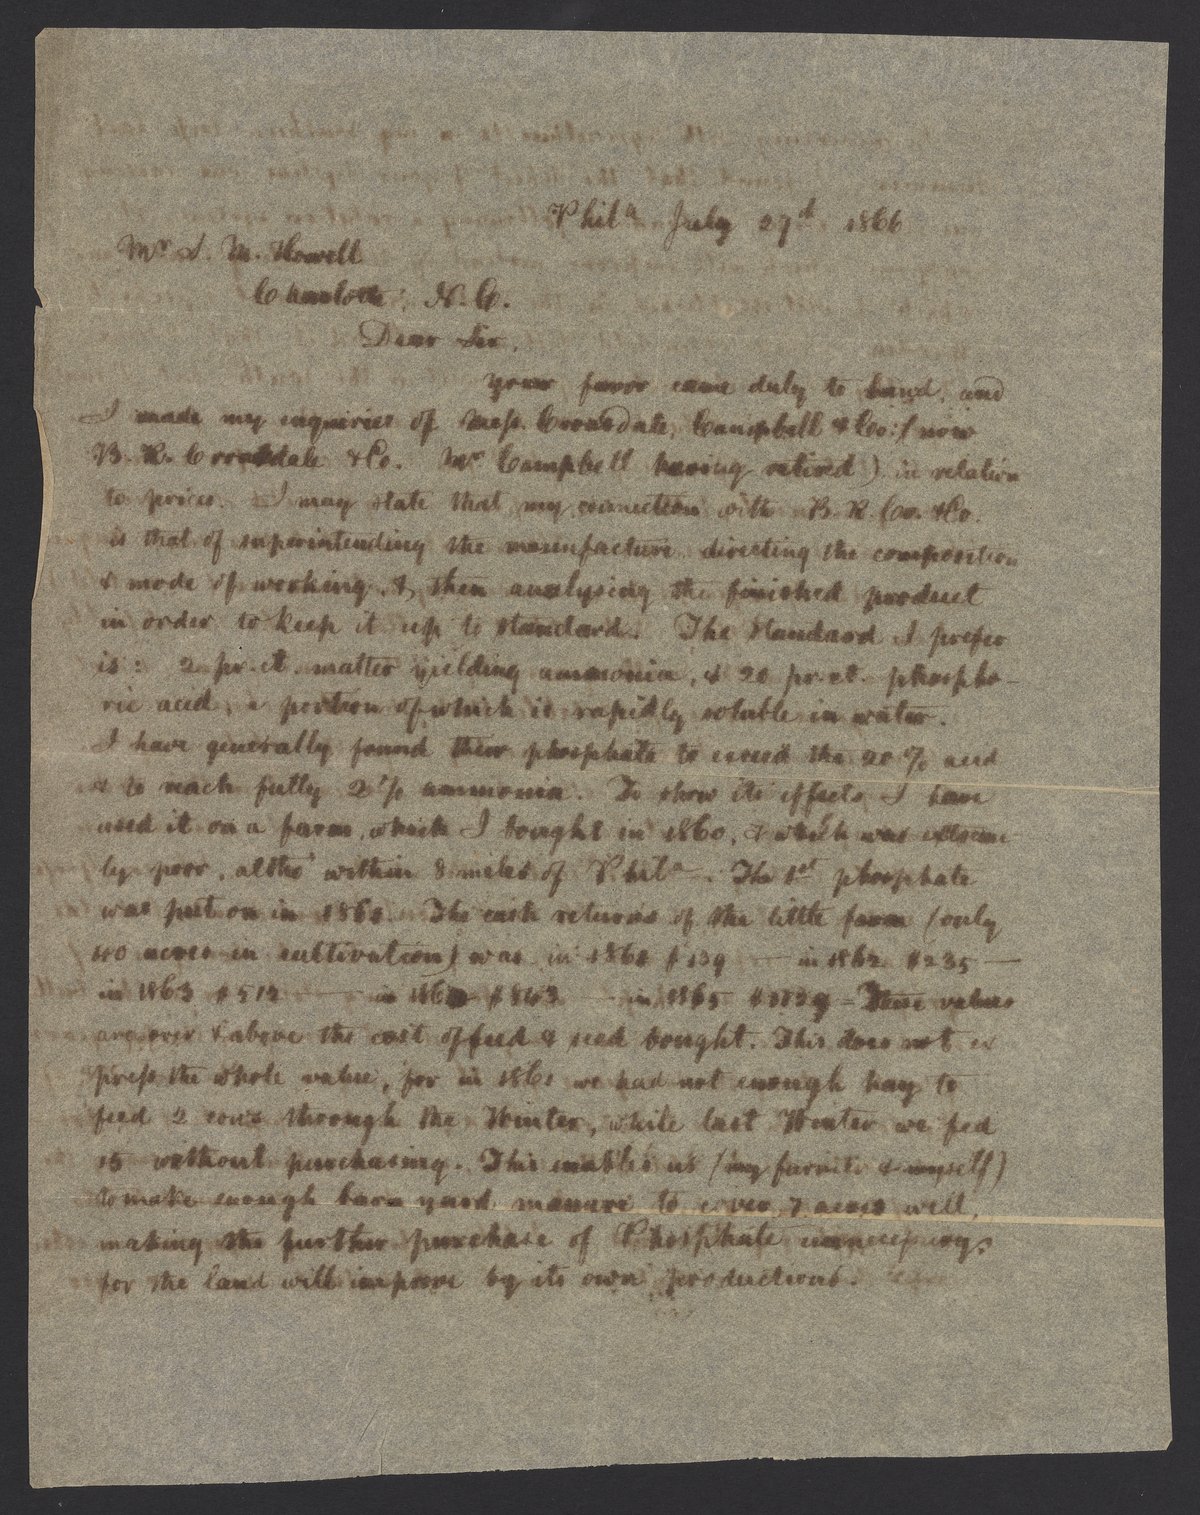 Phila July 27th 1866
Mr S. M. Howell
Charlotte, N. C.
Dear Sir,
Your favor came duly to hand, and
I made my inquiries of Mess. Croasdale, Campbell & Co. (now
B. R. Croasdale & Co. Mr Campbell having retired) in relation
to prices. I may state that my connection with B. R. Cro. & Co.
is that of superintending the manufacture, directing the composition
& mode of working, & then analysing the finished product
in order to keep it up to standard. The standard I prefer
is: 2 pr. ct. matter yielding ammonia, & 20 pr. ct. phospho-
ric acid, a portion of which is rapidly soluble in water.
I have generally found their phosphate to exceed the 20 % acid
& to reach fully 2 % ammonia. To show its effects, I have
used it on a farm, which I bought in 1860, & which was extreme
ly poor, altho' within 8 miles of Phila. The 1st phosphate
was put on in 1861. The cash returns of the little farm (only
40 acres in cultivation) was in 1861 $139 — in 1862 $235 —
in 1863 $512 — in $863 — in 1865 — These values
are over & above the cost of feed & seed bought. This does not ex
press the whole value, for in 1861 we had not enough hay to
feed 2 cows through the Winter, while last Winter we fed
15 without purchasing. This enables us (my farmer & myself)
to make enough barn yard manure to cover 7 acres well,
making the further purchase of Phosphate unnecessary,
for the land will improve by its own productions.